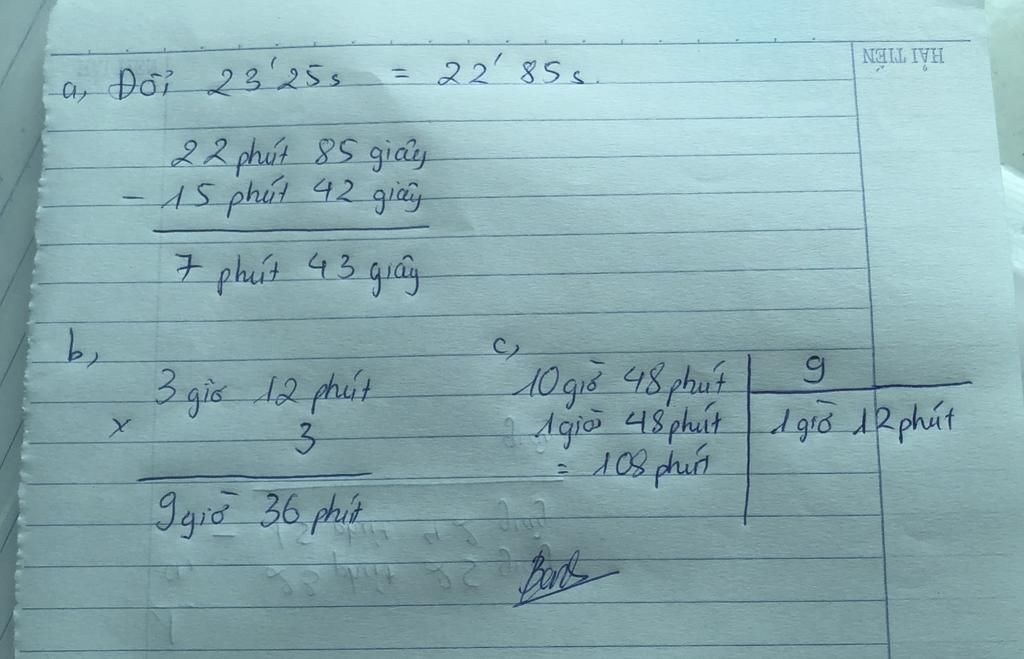 HẢI TIẾN
a, Đổi 23' 25s = 22' 85s.
22 phút 85 giây
- 15 phút 42 giây
7 phút 43 giây
b,
3 giờ 12 phút
x 3
9 giờ 36 phút
c,
10 giờ 48 phút 9
1 giờ 48 phút 1 giờ 12 phút
= 108 phút